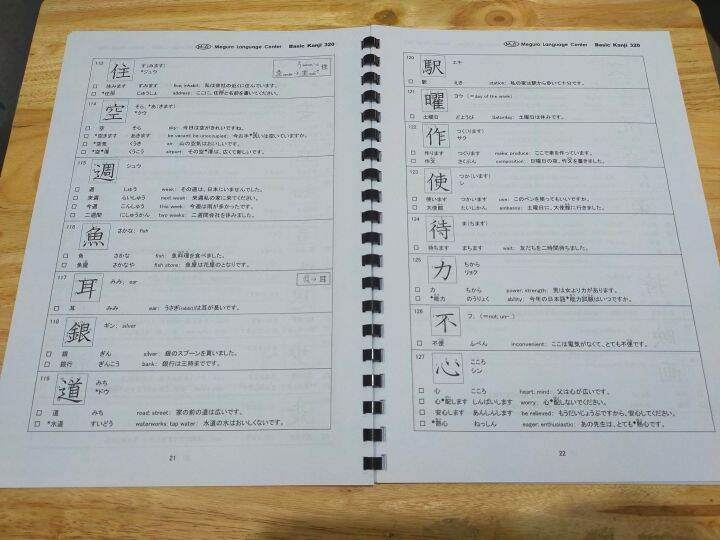 MLC Meguro Language Center Basic Kanji 320
113
住 す(みます)
*ジュウ
□ 住みます すみます live; inhabit: 私は会社の近くに住んでいます。
□ *住所 じゅうしょ address: ここに、住所と名前を書いてください。
114
空 そら、*あ(きます)
*クウ
□ 空 そら sky: 今日は空がきれいですね。
□ *空きます あきます be vacant; be unoccupied:
□ *空気 くうき air: 山の空気はおいしいです。
□ *空*港 くうこう airport: その空*港は、広くて新しいです。
115
週 シュウ
□ 週 しゅう week: その週は、日本にいませんでした。
□ 来週 らいしゅう next week: 来週私の家に来てください。
□ 今週 こんしゅう this week: 今週は雨が多かったです。
□ 二週間 にしゅうかん two weeks: 二週間会社を休みました。
116
魚 さかな: fish
□ 魚 さかな fish: 魚料理を食べました。
□ 魚屋 さかなや fish store: 魚屋は花屋のとなりです。
117
耳 みみ: ear
→ 耳
□ 耳 みみ ear: うさぎ(rabbit)は耳が長いです。
118
銀 ギン: silver
□ 銀 ぎん silver: 銀のスプーンを買いました。
□ 銀行 ぎんこう bank: 銀行は三時までです。
119
道 みち
*ドウ
□ 道 みち road; street: 家の前の道は広いです。
□ *水道 すいどう waterworks; tap water: 水道の水はおいしくないです。
21
MLC Meguro Language Center Basic Kanji 320
120
駅 エキ
□ 駅 えき station: 私の家は駅から歩いて十分です。
121
曜 ヨウ (=day of the week)
□ 土曜日 どようび Saturday: 土曜日は休みです。
122
作 つく(ります)
サク
□ 作ります つくります make; produce: ここで車を作っています。
□ 作文 さくぶん composition: 日曜日の夜、作文を書きました。
123
使 つか(います)
シ
□ 使います つかいます use: このペンを使ってもいいですか。
□ 大使館 たいしかん embassy: 土曜日に、大使館に行きました。
124
待 ま(ちます)
□ 待ちます まちます wait: 友だちを二時間待ちました。
125
力 ちから
リョク
□ 力 ちから power; strength: 男は女より力があります。
□ *能力 のうりょく ability: 今年の日本語*能力試験はいつですか。
126
不 フ: (=not; un-)
□ 不便 ふべん inconvenient: ここは電気がなくて、とても不便です。
127
心 こころ
シン
□ 心 こころ heart; mind: 父は心が広いです。
□ 心*配します しんぱいします worry: 心*配しないでください。
□ 安心します あんしんします be relieved: もうだいじょうぶですから、安心してください。
□ *熱心 ねっしん eager; enthusiastic: あの先生は、とても*熱心です。
22